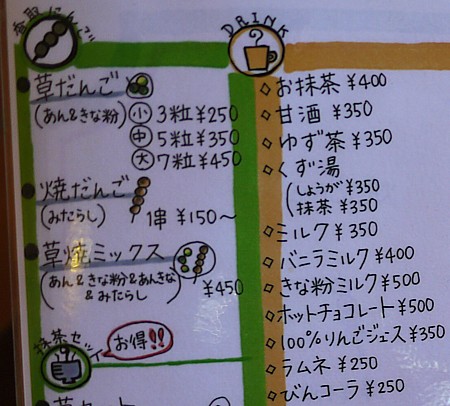 香取だんご
草だんご
(あん&きな粉)
小 3粒¥250
中 5粒¥350
大 7粒¥450
焼だんご
(みたらし)
1串 ¥150〜
草焼ミックス
(あん&きな粉&あんきな
&みたらし)
¥450
抹茶セット
お得!!
DRINK
お抹茶 ¥400
甘酒 ¥350
ゆず茶 ¥350
くず湯
(しょうが ¥350
抹茶 ¥350
ミルク ¥350
バニラミルク ¥400
きな粉ミルク ¥500
ホットチョコレート ¥500
100%りんごジュース ¥350
ラムネ ¥250
びんコーラ ¥250